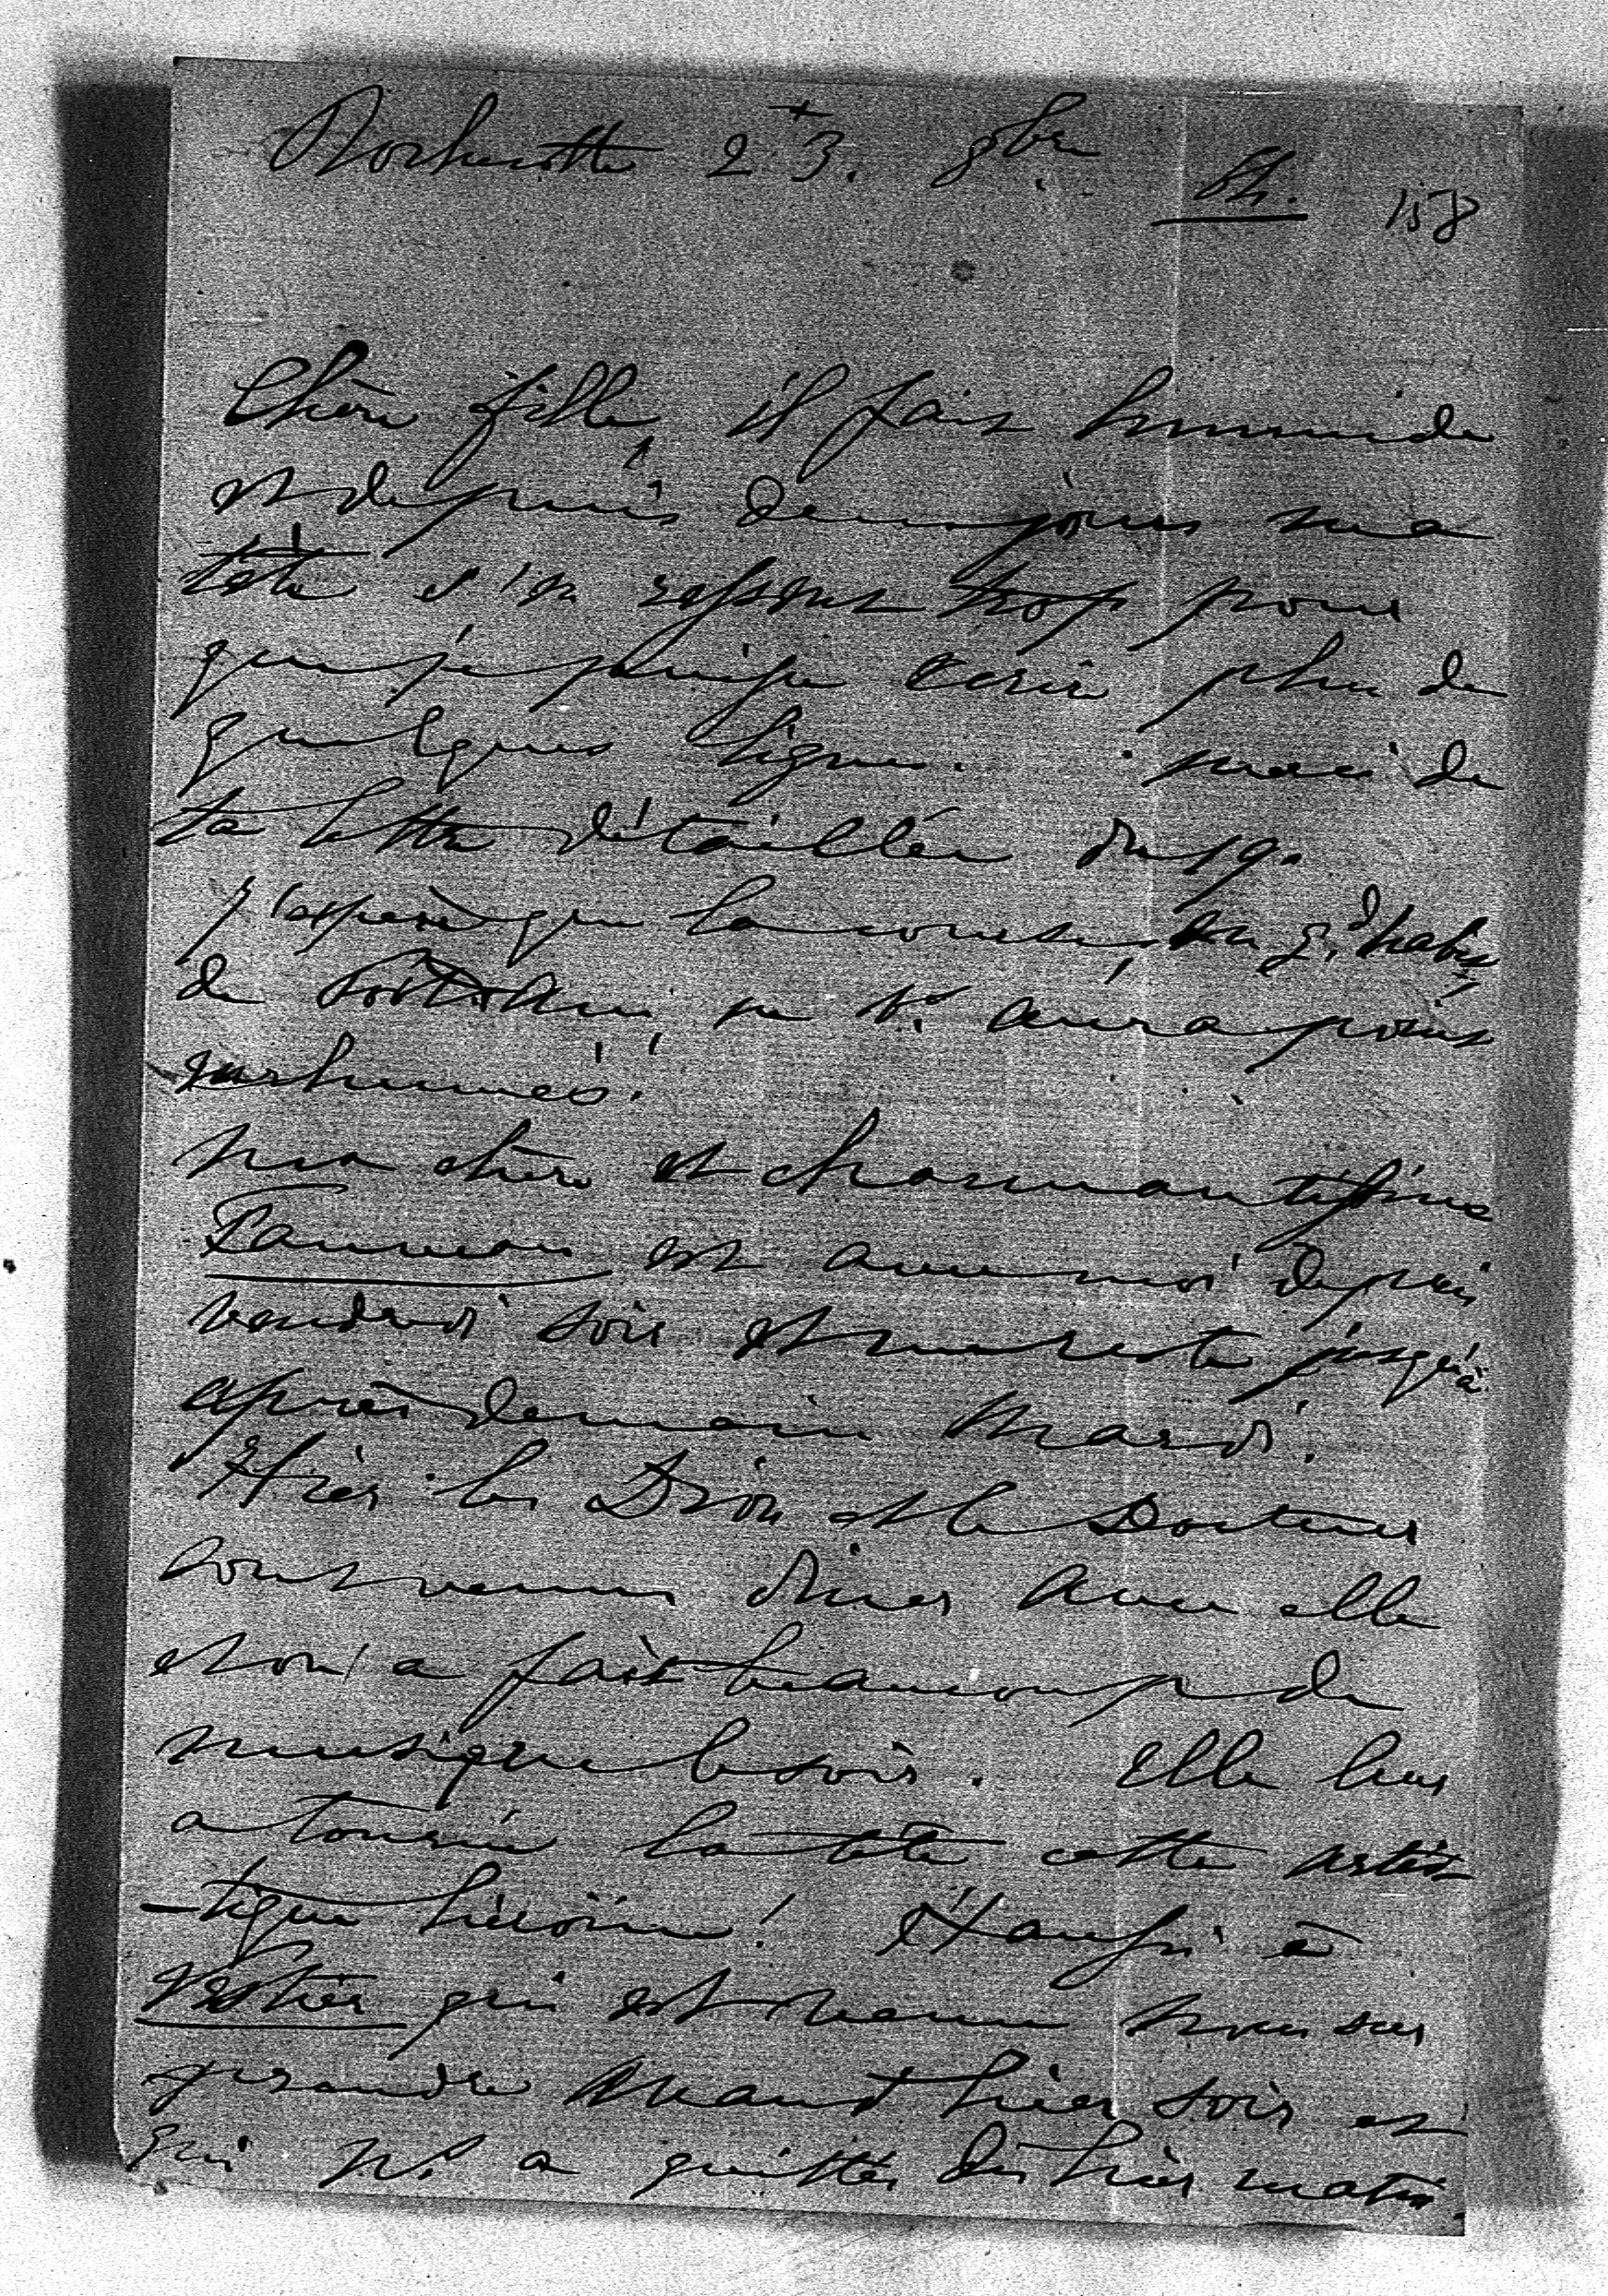 Rochecotte 23. 8bre 54. 158
Chère fille, il fait hummide
et depuis deux jours ma
tête s'en ressent trop pour
que je puisse ecrire plus de
quelques lignes. merci de
ta lettre détaillée du 19.
J'espère que la course, en gd habit,
de Potsdam, ne t' aura point
enrhumée.
ma chère et charmantissime
Fauveau est avec moi depuis
vendredi soir et me reste jusqu'à
après demain Mardi.
Hier les Dion et le Docteur
sont venus diner avec elle
et on a fait beaucoup de
musique le soir. Elle leur
a tourné la tête cette artis
-tique héroïne! Et aussi à
Vestier qui est venu nous sur
prendre Avant hier soir et
qui ns. a quittés dès hier matin